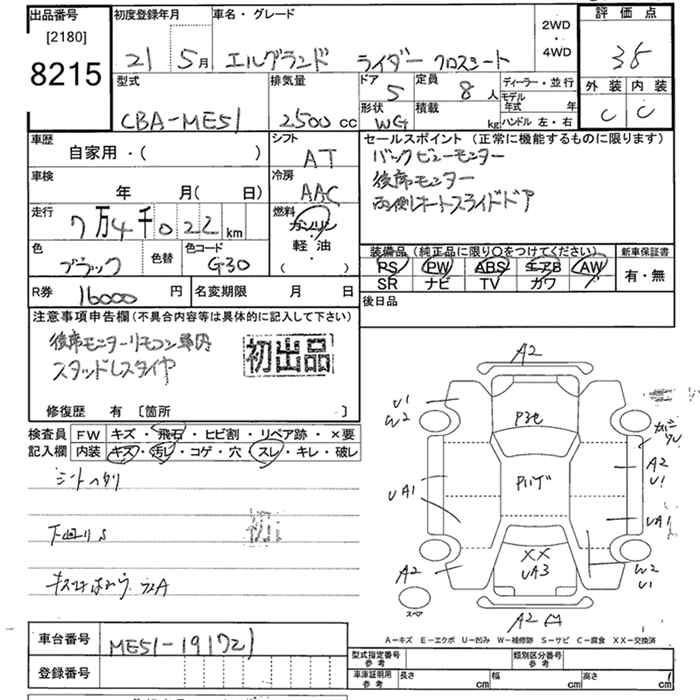 出品番号 [2180] 8215
初度登録年月 21 5月
車名・グレード エルグランド ライダー クロスシート
2WD・4WD
評価点 3.5
外装 C 内装 C
型式 CBA-ME51
排気量 2500 cc
ドア 5 定員 8人
形状 WG 積載 kg
ディーラー・並行
モデル年式 年
ハンドル 左・右
車歴 自家用・( )
シフト AT
車検 年 月(日)
冷房 AAC
走行 7万4千022km
燃料 ガソリン・軽油・( )
色 ブラック 色替 色コード G30
R券 16000円 名変期限 月 日
セールスポイント (正常に機能するものに限ります)
バックビューモニター
後席モニター
両側オートスライドドア
装備品 (純正品に限り○をつけてください)
PS PW ABS エアB AW
SR ナビ TV カワ
新車保証書 有・無
後日品
注意事項申告欄(不具合内容等は具体的に記入して下さい)
後席モニターリモコン車内
スタッドレスタイヤ
初出品
修復歴 有 [箇所 ]
検査員記入欄
FW キズ・飛石・ヒビ割・リペア跡・×要
内装 キズ・汚レ・コゲ・穴・スレ・キレ・破レ
シートヘタリ
下回りS
初
A2
U1
W2
P3e
A2
U1
UA1
UA1
XX
UA3
A2
W2
U1
スペア
A2
A－キズ E－エクボ U－凹み W－補修跡 S－サビ C－腐食 XX－交換済
車台番号 ME51-191721
登録番号
型式指定番号 参考 類別区分番号 参考
車庫証明用 参考 長さ cm 幅 cm 高さ cm